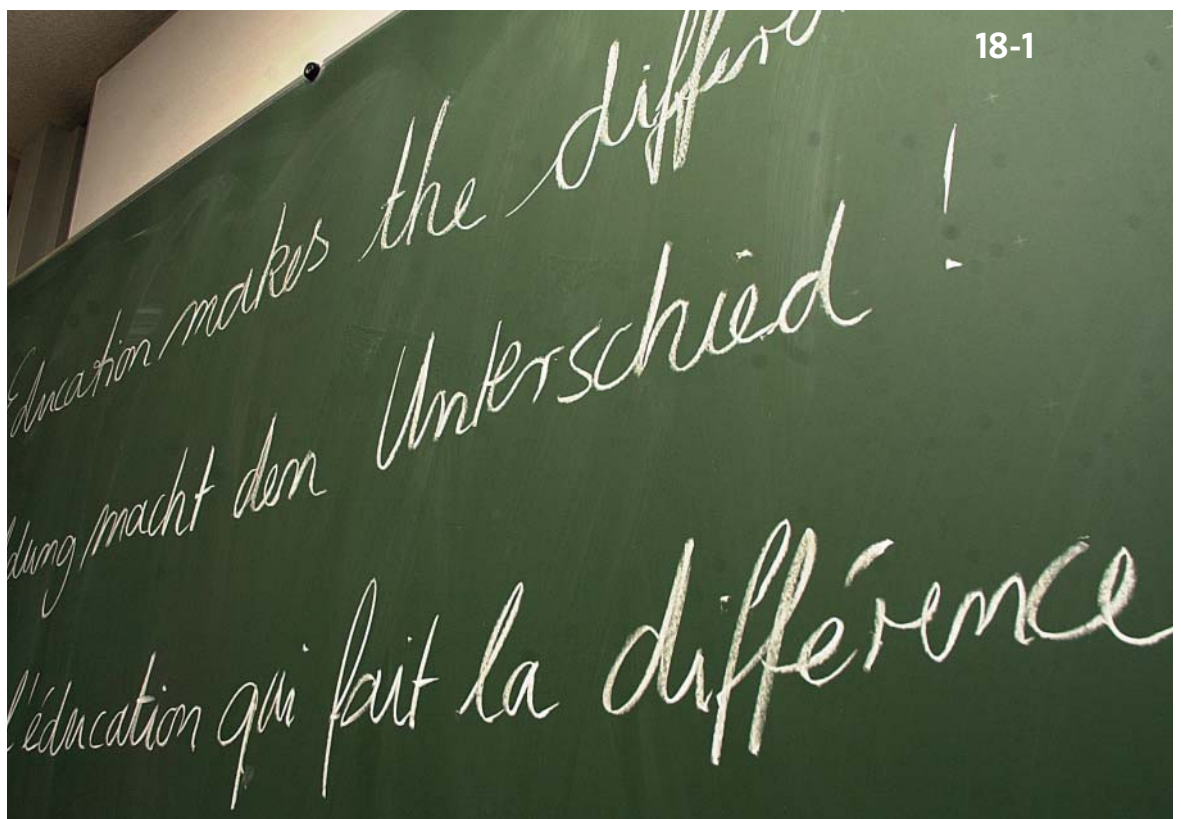 18-1
Education makes the differe
dung macht den Unterschied !
l'éducation qui fait la différence